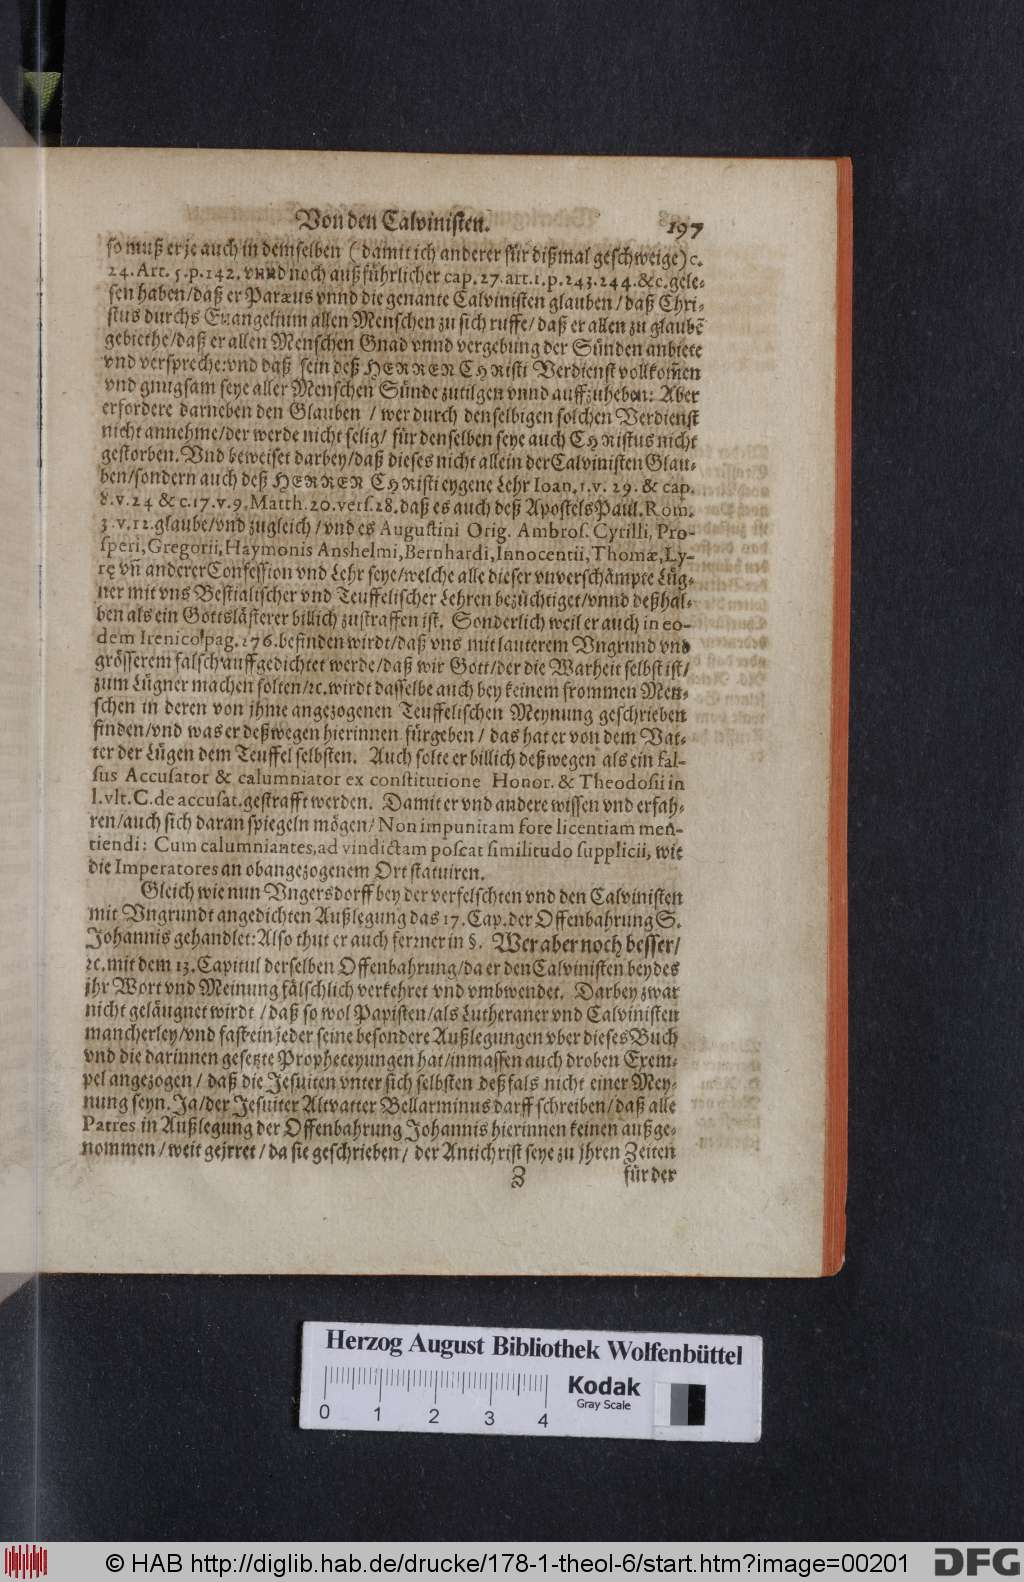 Von den Calvinisten. 197
so muß er je auch in demselben (damit ich anderer für dißmal geschweige) c.
24. Art. 5. p. 142. vnnd noch außführlicher cap. 27. art. 1. p. 243. 244. &c. gele-
sen haben/daß er Paræus vnnd die genante Calvinisten glauben/daß Chri-
stus durchs Euangelium allen Menschen zu sich ruffe/daß er allen zu glaubē
gebiethe/daß er allen Menschen Gnad vnnd vergebung der Sünden anbiete
vnd verspreche: vnd daß sein deß HERREN CHRisti Verdienst vollkom̃en
vnd gnugsam seye aller Menschen Sünde zutilgen vnnd auffzuheben: Aber
erfordere darneben den Glauben/wer durch denselbigen solchen Verdienst
nicht annehme/der werde nicht selig/ für denselben seye auch CHRistus nicht
gestorben. Vnd beweiset darbey/daß dieses nicht allein der Calvinisten Glau-
ben/sondern auch deß HERREN CHRisti eygene Lehr Ioan. 1. v. 29. & cap.
v. 24 & c. 17. v. 9. Matth. 20. vers. 28. daß es auch deß Apostels Paul. Rom.
3. v. 12. glaube/vnd zugleich/vnd es Augustini Orig. Ambros. Cyrilli, Pro-
speri, Gregorii, Haymonis Anshelmi, Bernhardi, Innocentii, Thomæ, Ly-
rę vñ anderer Confession vnd Lehr seye/welche alle dieser vnverschämpte Lüg-
ner mit vns Bestialischer vnd Teuffelischer Lehren bezüchtiget/vnnd deßhal-
ben als ein Gottslästerer billich zustraffen ist. Sonderlich weil er auch in eo-
dem Irenico pag. 176. befinden wirdt/daß vns mit lauterem Vngrund vnd
grösserem falsch auffgedichtet werde/daß wir Gott/der die Warheit selbst ist/
zum Lügner machen solten/ꝛc. wirdt dasselbe auch bey keinem frommen Men-
schen in deren von jhme angezogenen Teuffelischen Meynung geschrieben
finden/vnd was er deßwegen hierinnen fürgeben/ das hat er von dem Vat-
ter der Lügen dem Teuffel selbsten. Auch solte er billich deßwegen als ein fal-
sus Accusator & calumniator ex constitutione Honor. & Theodosii in
l. vlt. C. de accusat. gestrafft werden. Damit er vnd andere wissen vnd erfah-
ren/auch sich daran spiegeln mögen/ Non impunitam fore licentiam men-
tiendi: Cum calumniantes, ad vindictam poscat similitudo supplicii, wie
die Imperatores an obangezogenem Ort statuiren.
Gleich wie nun Vngersdorff bey der verfelschten vnd den Calvinisten
mit Vngrundt angedichten Außlegung das 17. Cap. der Offenbahrung S.
Johannis gehandlet: Also thut er auch ferrner in §. Wer aber noch besser/
ꝛc. mit dem 13. Capitul derselben Offenbahrung/da er den Calvinisten beydes
jhr Wort vnd Meinung fälschlich verkehret vnd vmbwendet. Darbey zwar
nicht geläugnet wirdt/daß so wol Papisten/als Lutheraner vnd Calvinisten
mancherley/vnd fast ein jeder seine besondere Außlegungen vber dieses Buch
vnd die darinnen gesetzte Propheceyungen hat/inmassen auch droben Exem-
pel angezogen/ daß die Jesuiten vnter sich selbsten deßfals nicht einer Mey-
nung seyn. Ja/der Jesuiter Altvatter Bellarminus darff schreiben/daß alle
Patres in Außlegung der Offenbahrung Johannis hierinnen keinen außge-
nommen/weit gejrret/da sie geschrieben/ der Antichrist seye zu jhren Zeiten
Z für der
Herzog August Bibliothek Wolfenbüttel
0 1 2 3 4
Kodak
Gray Scale
© HAB http://diglib.hab.de/drucke/178-1-theol-6/start.htm?image=00201
DFG